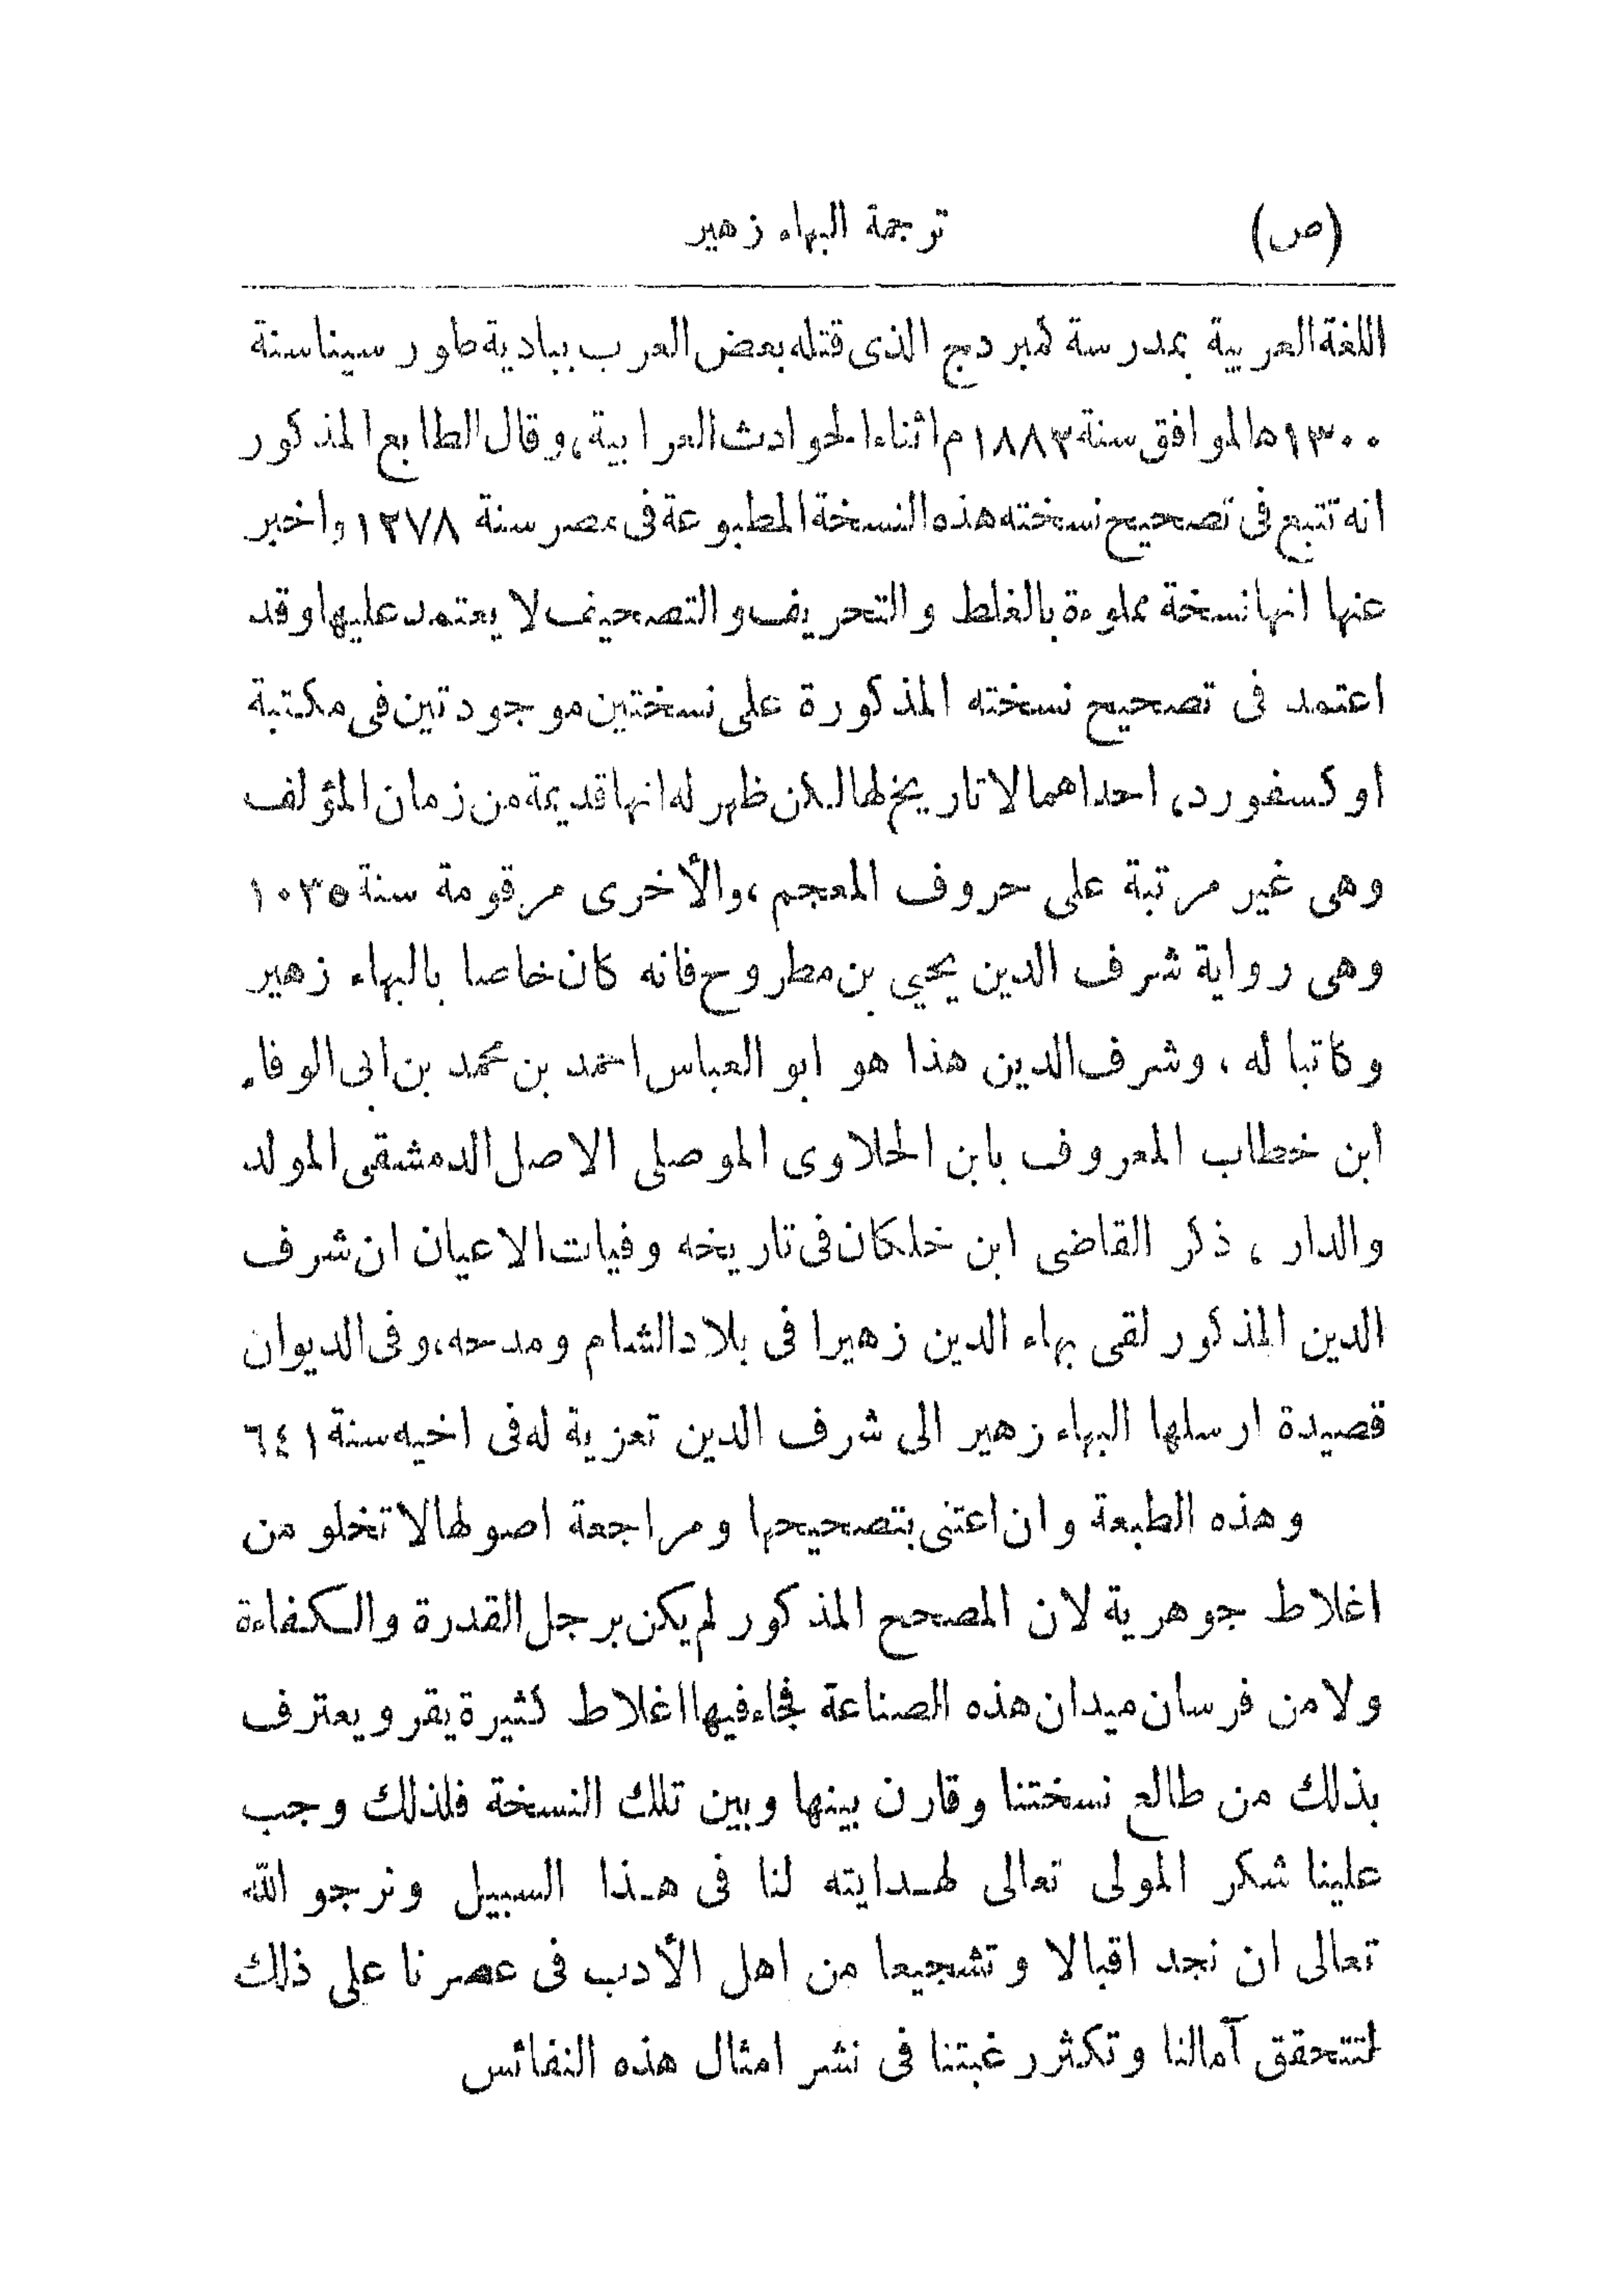 (ص) ترجمة البهاء زهير
اللغة العربية بمدرسة كمبردج الذى قتله بعض العرب ببادية طور سينا سنة
١٣٠٠ ه الموافق سنة ١٨٨٣ م اثناء الحوادث العرابية، وقال الطابع المذكور
انه تتبع فى تصحيح نسخته هذه النسخة المطبوعة فى مصر سنة ١٢٧٨ واخبر
عنها انها نسخة مملوءة بالغلط والتحريف والتصحيف لا يعتمد عليها وقد
اعتمد فى تصحيح نسخته المذكورة على نسختين موجودتين فى مكتبة
اوكسفورد، احداهما لا تاريخ لها لكن ظهر له انها قديمة من زمان المؤلف
وهى غير مرتبة على حروف المعجم، والأخرى مرقومة سنة ١٠٣٥
وهى رواية شرف الدين يحيي بن مطروح فانه كان خاصا بالبهاء زهير
وكاتبا له، وشرف الدين هذا هو ابو العباس احمد بن محمد بن ابى الوفاء
ابن خطاب المعروف بابن الحلاوى الموصلى الاصل الدمشقى المولد
والدار، ذكر القاضى ابن خلكان فى تاريخه وفيات الاعيان ان شرف
الدين المذكور لقى بهاء الدين زهيرا فى بلاد الشام ومدحه، وفى الديوان
قصيدة ارسلها البهاء زهير الى شرف الدين تعزية له فى اخيه سنة ٦٤١
وهذه الطبعة وان اعتنى بتصحيحها ومراجعة اصولها لا تخلو من
اغلاط جوهرية لان المصحح المذكور لم يكن برجل القدرة والكفاءة
ولا من فرسان ميدان هذه الصناعة فجاء فيها اغلاط كثيرة يقر ويعترف
بذلك من طالع نسختنا وقارن بينها وبين تلك النسخة فلذلك وجب
علينا شكر المولى تعالى لهدايته لنا فى هذا السبيل ونرجو الله
تعالى ان نجد اقبالا وتشجيعا من اهل الأدب فى عصرنا على ذلك
لتتحقق آمالنا وتكثر رغبتنا فى نشر امثال هذه النفائس